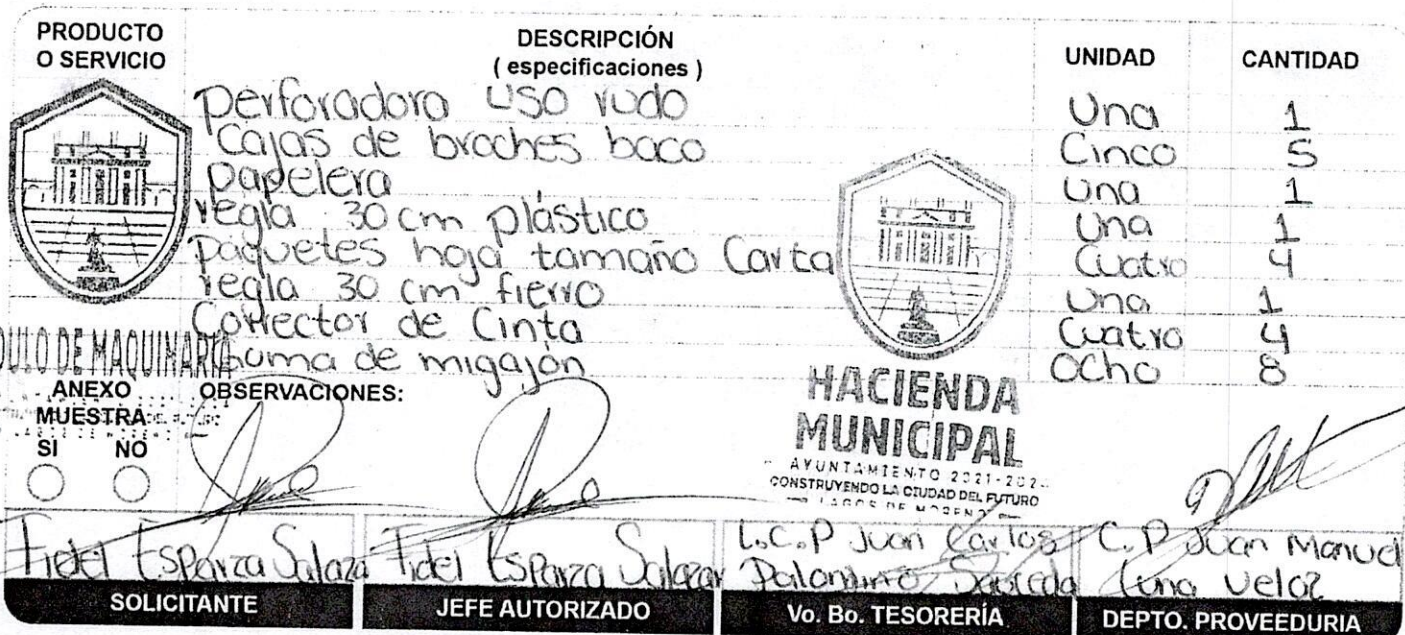 PRODUCTO O SERVICIO DESCRIPCIÓN ( especificaciones ) UNIDAD CANTIDAD
perforadora uso rudo Una 1
Cajas de broches baco Cinco 5
Papelera una 1
regla 30 cm plástico Una 1
Paquetes hoja tamaño Carta Cuatro 4
regla 30 cm fierro Una 1
Corrector de Cinta Cuatro 4
de migajón Ocho 8
DE MAQUINARIA
ANEXO MUESTRA
SI NO
OBSERVACIONES:
HACIENDA
MUNICIPAL
AYUNTAMIENTO
CONSTRUYENDO LA CIUDAD DEL FUTURO
LAGOS DE MORENO
Fidel Esparza Salazar Fidel Esparza Salazar L.C.P Juan Carlos C.P Juan Manuel
Luna Veloz
SOLICITANTE JEFE AUTORIZADO Vo. Bo. TESORERÍA DEPTO. PROVEEDURIA